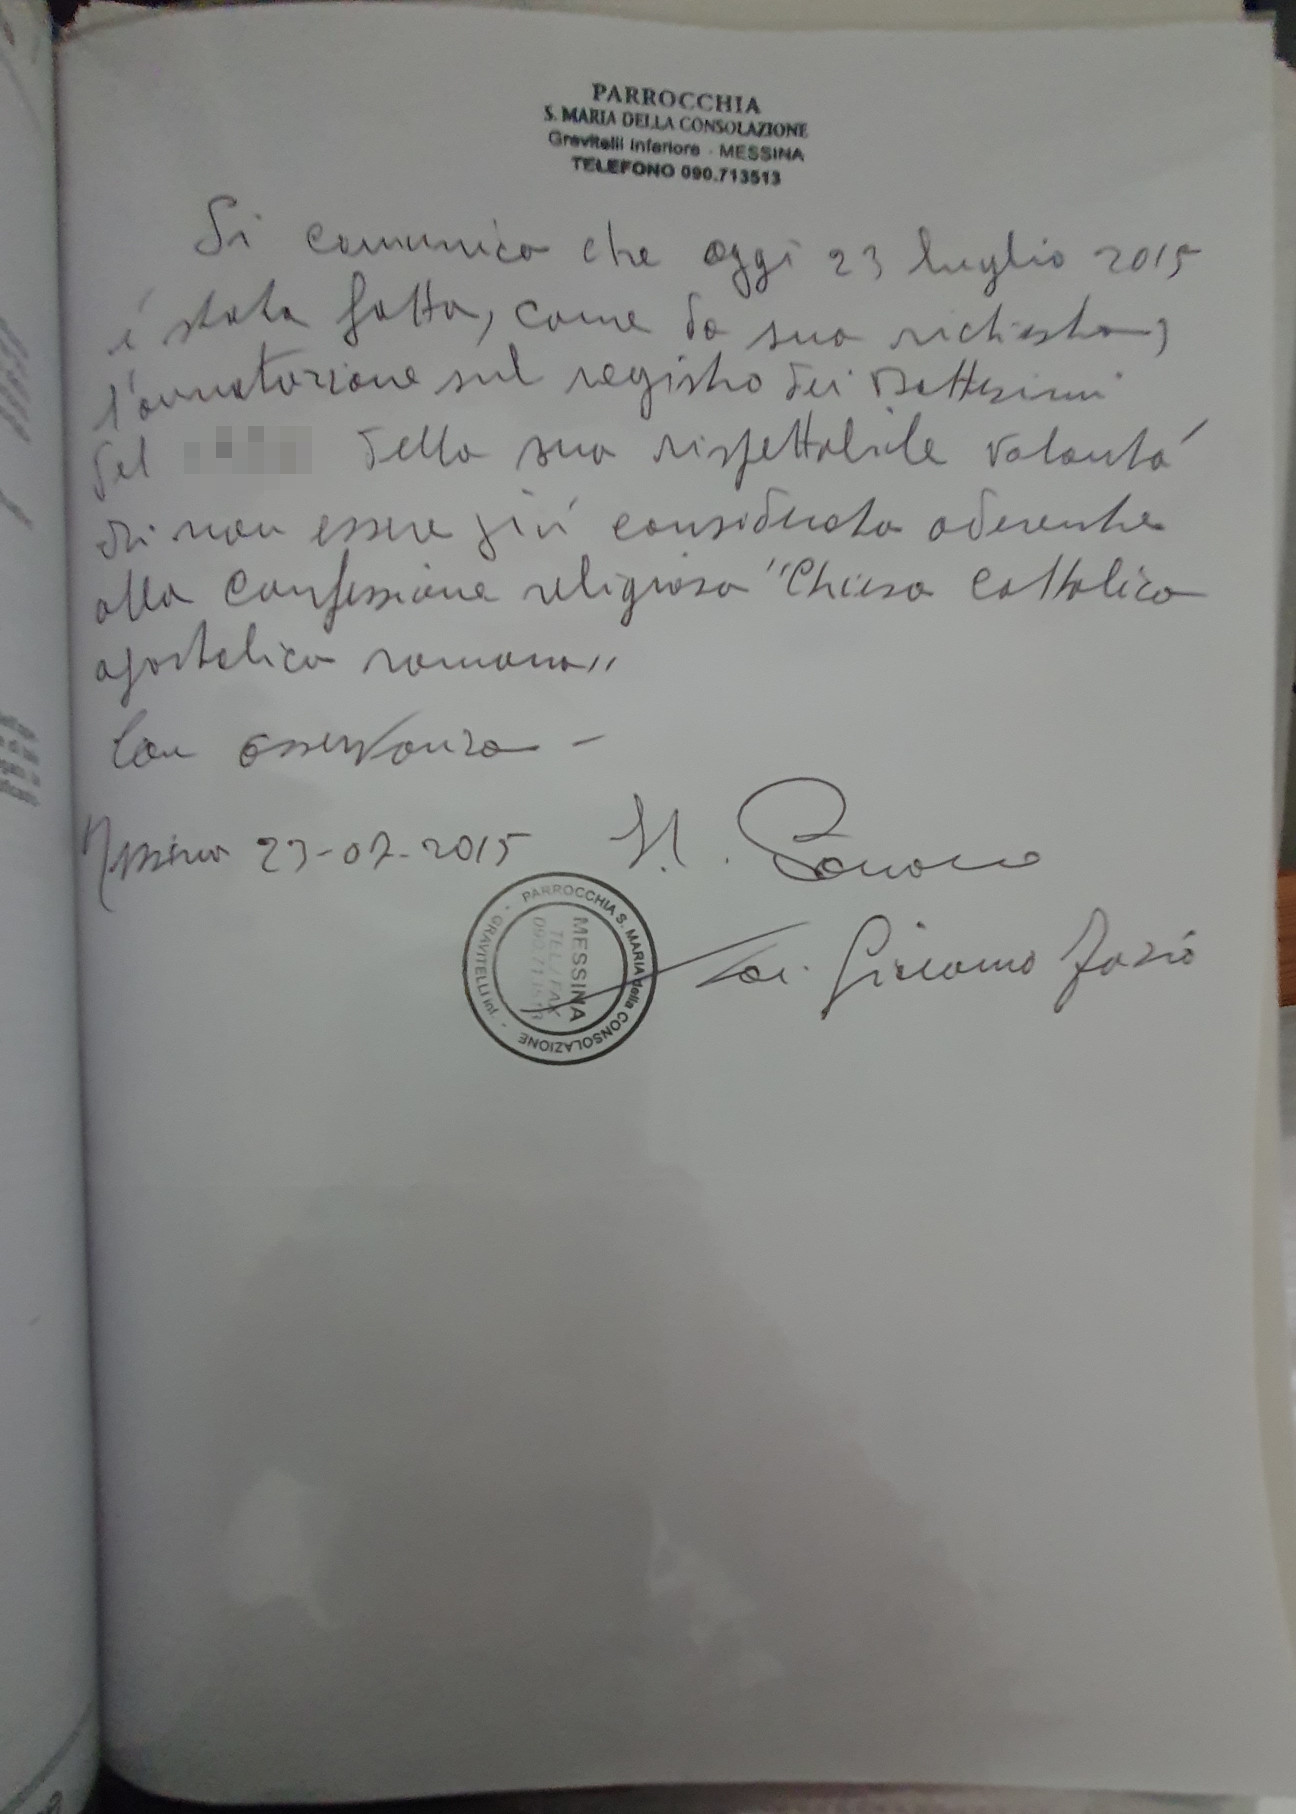 PARROCCHIA
S. MARIA DELLA CONSOLAZIONE
Gravitelli Inferiore - MESSINA
TELEFONO 090.713513
Si comunica che oggi 23 luglio 2015
é stata fatta, come da sua richiesta,
l'annotazione sul registro dei Battesimi
del della sua rispettabile volontá
di non essere piú considerata aderente
alla confessione religiosa "Chiesa Cattolica
apostolica romana"
Con osservanza -
Messina 23-07-2015 Il Parroco
Sac. Giacomo Fazio
PARROCCHIA S. MARIA della CONSOLAZIONE - GRAVITELLI Inf. -
MESSINA
TEL/FAX
090.713513